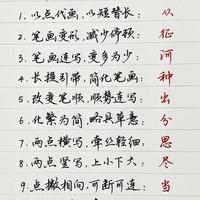 1. 以点代画，以短替长： 以
2. 笔画变形，减少停顿： 征
3. 笔画连写，变多为少： 河
4. 长撇引带，简化笔画： 种
5. 改变笔顺，顺势连写： 出
6. 化繁为简，略具草意： 分
7. 两点横写，牵丝轻细： 思
8. 两点竖写，上小下大： 尽
9. 点撇相向，可断可连： 当